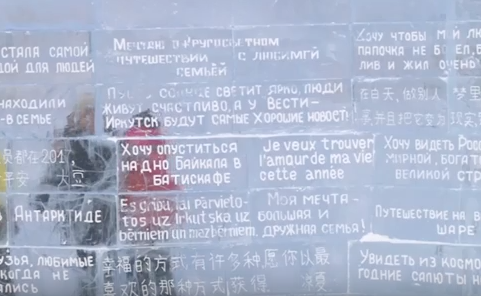 СТАЛА САМОЙ
ДОЙ ДЛЯ ЛЮДЕЙ
Мечтаю о кругосветном
путешествии с любимой
семьёй
Хочу чтобы мой
папочка не болел,
лив и жил очень
НАХОДИЛИ
В СЕМЬЕ
солнце светит ярко, люди
живут счастливо, а у Вести-
Иркутск будут самые хорошие новости
在白天、做别人
并且把它变为现实
员都在201
平安 大豆
Хочу опуститься
на дно Байкала в
батискафе
Je veux trouver
l'amour de ma vie
cette année
Хочу видеть
мирной, богат
великой стр
Антарктиде
Es gribu, lai pārvieto-
tos uz Irkutsku uz
bērniem un mazbērniem.
Моя мечта -
большая и
дружная семья!
Путешествие на в
шаре
узья, любимые
когда не
ались
幸福的方式有许多种愿你以最
喜欢的那种方式获得
Увидеть из космо
годние салюты н